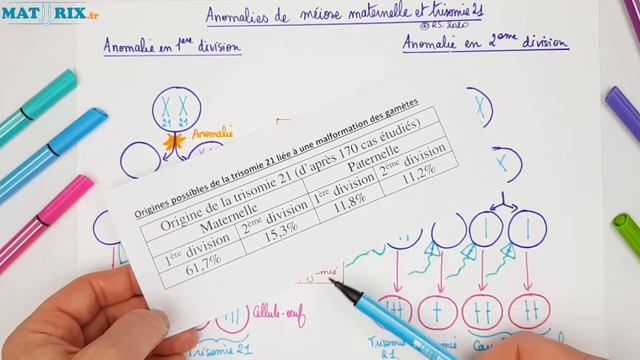 MATRIX.fr
Anomalies de méiose maternelle et trisomie 21
@RS.2020
Anomalie en 1ère division
Anomalie en 2ème division
X X
21 21
Anomalie
X
Origines possibles de la trisomie 21 liée à une malformation des gamètes
Origine de la trisomie 21 (d'après 170 cas étudiés)
Maternelle Paternelle
1ère division 2ème division 1ère division 2ème division
61,7% 15,3% 11,8% 11,2%
Cellule-œuf
Trisomie 21
Trisomie
21